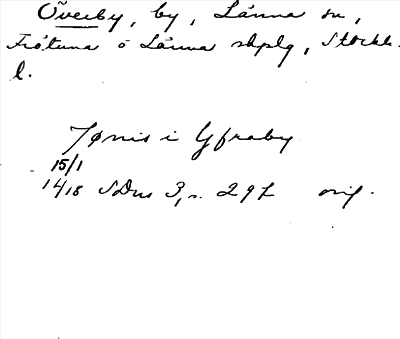 Överby, by, Länna sn,
Frötuna o Länna skplg, Stockh.
l.
Jønis i Yfraby
15/1
1418 SDns 3, s. 297 orig.